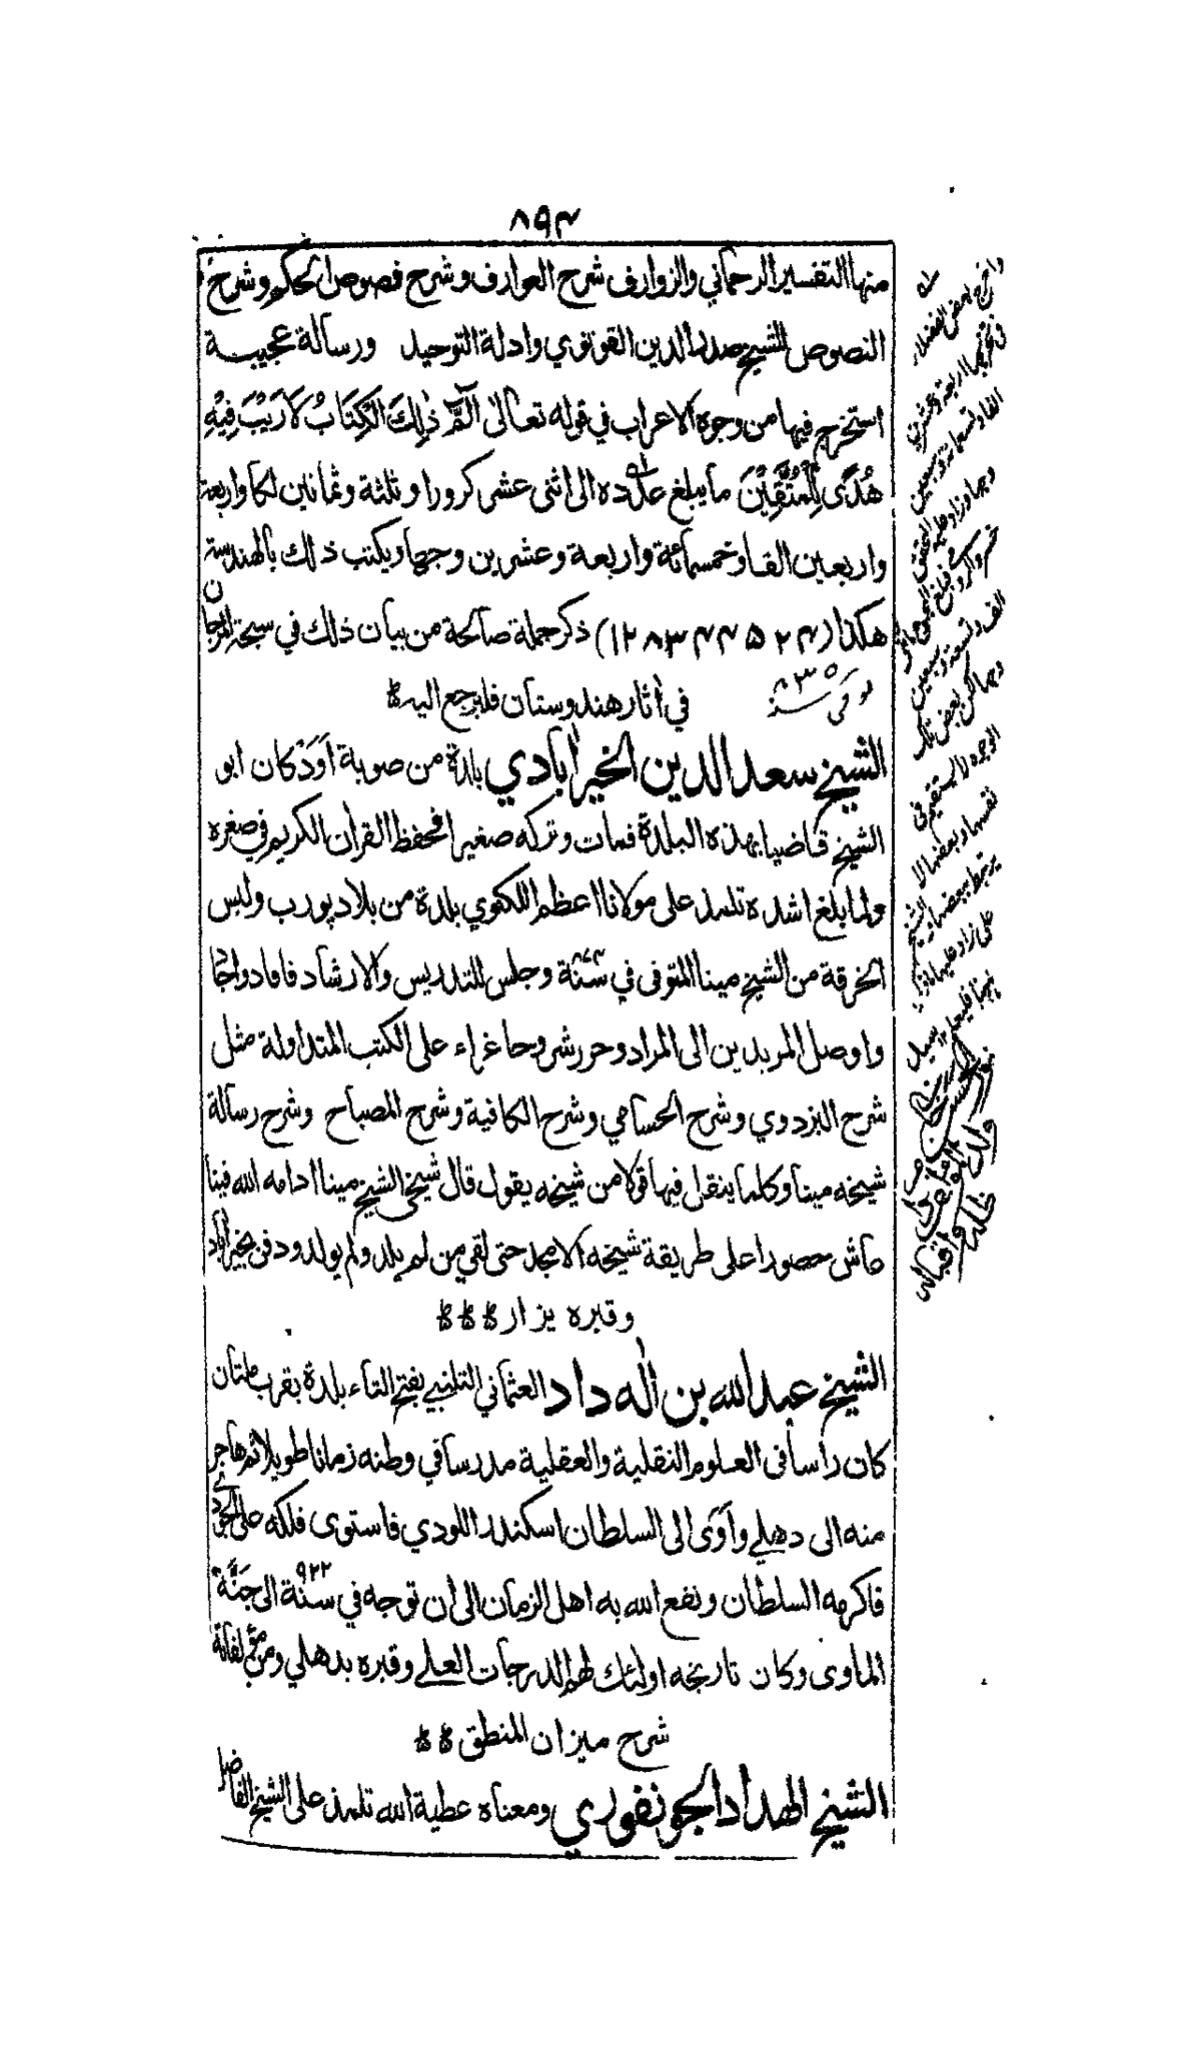 ٨٩٤
منها التفسير الرحماني والزوارف شرح العوارف وشرح فصوص الحكم وشرح
النصوص للشيخ صدر الدين القونوي وادلة التوحيد ورسالة عجيبة
استخرج فيها من وجوه الاعراب في قوله تعالى الٓمّٓ ذٰلِكَ الْكِتَابُ لَارَيْبَ فِيْهِ
هُدًى لِّلْمُتَّقِيْنَ ما يبلغ عدده الى اثنى عشر كرورا وثلثة وثمانين لكا واربعة
واربعين الفا وخمسمائة واربعة وعشرين وجها ويكتب ذلك بالهندسة
هكذا (١٢٨٣٤٤٥٢٤) ذكر جملة صالحة من بيان ذلك في سبحة المرجان
في أثار هندوستان فليرجع اليه
توفى سنة ٨٣٥
الشيخ سعد الدين الخيرآبادي بلدة من صوبة اَوَدْ كان ابو
الشيخ قاضيا بهذه البلدة فمات وتركه صغيرا فحفظ القران الكريم في صغره
ولما بلغ اشده تلمذ على مولانا اعظم اللكنوي بلدة من بلاد پورب ولبس
الخرقة من الشيخ مينا المتوفى في سنة ٨٧٤ وجلس للتدريس والارشاد فافاد واجاد
واوصل المريدين الى المراد وحرر شروحا غراء على الكتب المتداولة مثل
شرح البزدوي وشرح الحسامي وشرح الكافية وشرح المصباح وشرح رسالة
شيخه مينا وكلما ينقل فيها قولا من شيخه يقول قال شيخي الشيخ مينا ادامه الله فينا
عاش حصورا على طريقة شيخه الامجد حتى لقي من لم يلد ولم يولد ودفن بخيرآباد
وقبره يزار
الشيخ عبد الله بن اله داد العثماني التلنبي بفتح التاء بلدة بقرب ملتان
كان راسا في العلوم النقلية والعقلية مدرسا في وطنه زمانا طويلا ثم هاجر
منه الى دهلي وآوَى الى السلطان اسكندر اللودي فاستوى فلكه على الجودي
فاكرمه السلطان ونفع الله به اهل الزمان الى ان توجه في سنة ٩٢٢ الى جَنَّة
الماوى وكان تاريخه اولئك لهم الدرجات العلى وقبره بدهلي ومن مؤلفاته
شرح ميزان المنطق
الشيخ الهداد الجونفوري ومعناه عطية الله تلمذ على الشيخ الفاضل
واخرج بعض الفضلاء
في تخريجها اربعة وعشرين
الفا وتسعمائة وسبعين
وجها وزاد عليه المحقق
الف وتسعة وسبعين
وجها لكن بعض تلك
الوجوه لا يستقيم في
نفسها وبعضها لا
يرتبط ببعضها